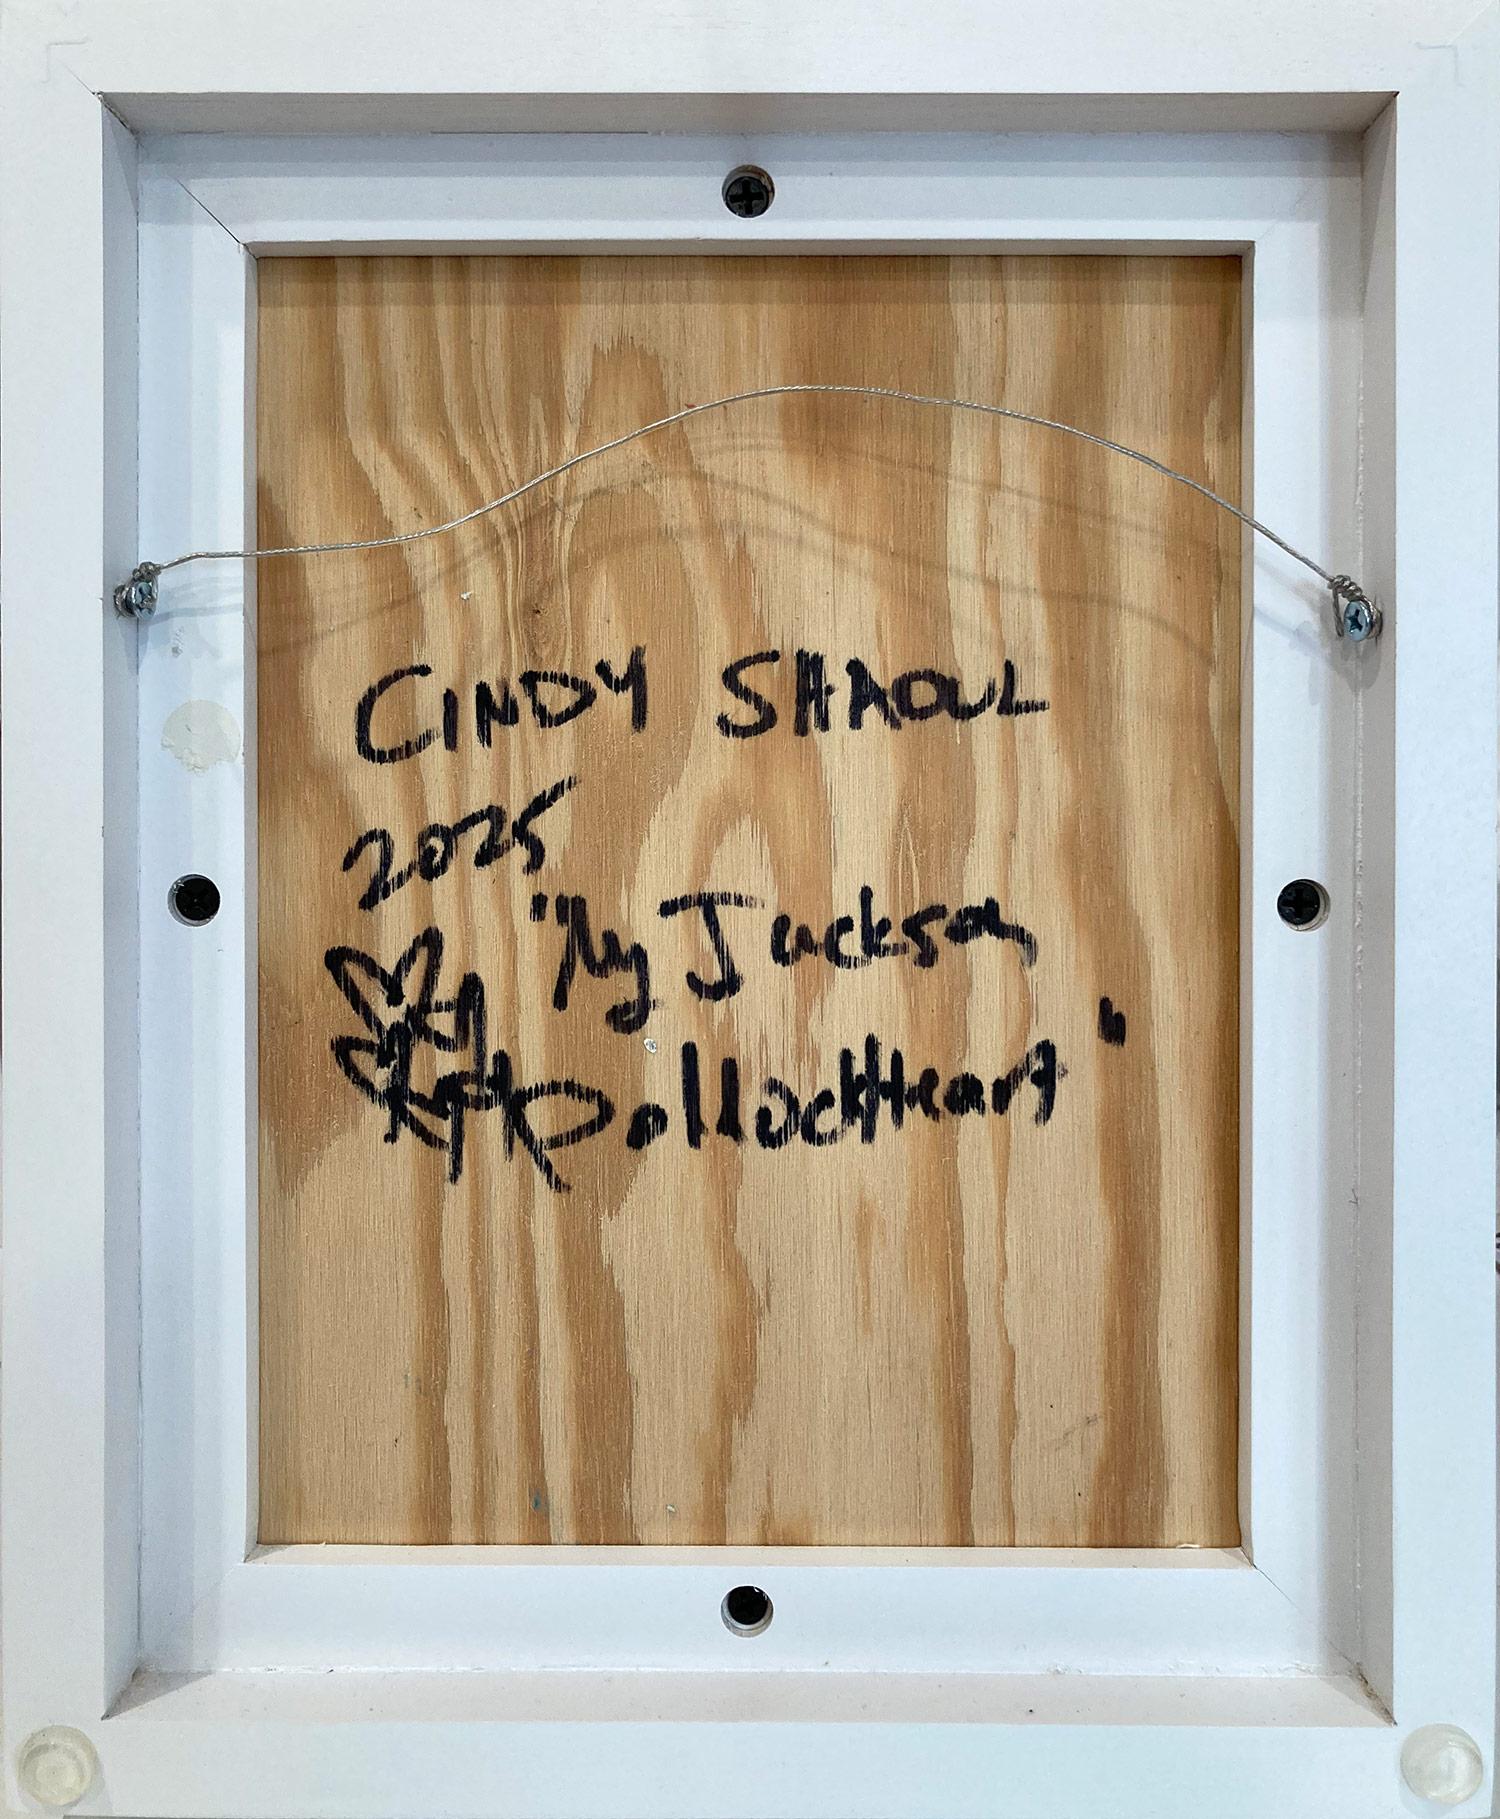 CINDY SHAOUL
2025
"My Jackson
Pollock Heart"